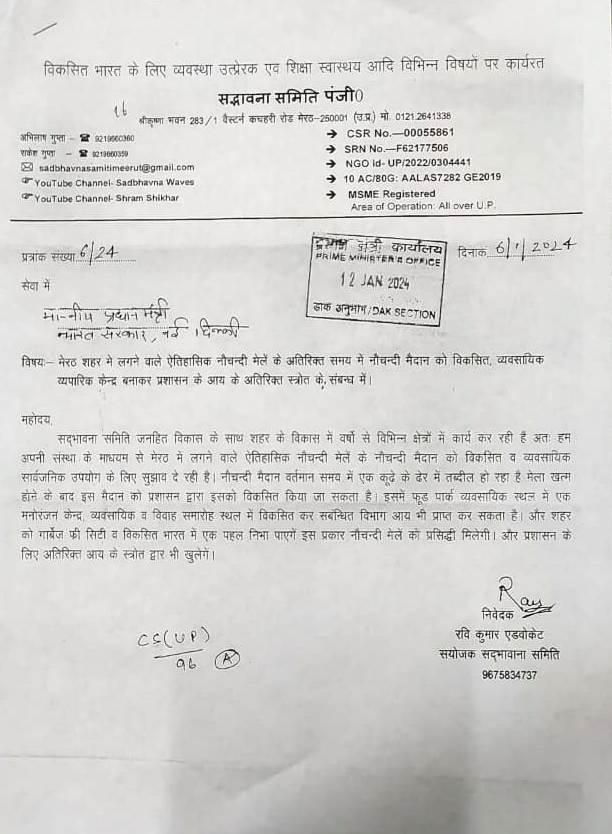 विकसित भारत के लिए व्यवस्था उत्प्रेरक एव शिक्षा स्वास्थय आदि विभिन्न विषयों पर कार्यरत
सद्भावना समिति पंजी0
16
श्रीकृष्णा भवन 283/1 वैस्टर्न कचहरी रोड मेरठ-250001 (उ.प्र.) मो. 0121.2641338
अभिलाष गुप्ता - ☎ 9219660360
राकेश गुप्ता - ☎ 9219660359
sadbhavnasamitimeerut@gmail.com
YouTube Channel- Sadbhavna Waves
YouTube Channel- Shram Shikhar
→ CSR No.—00055861
→ SRN No.—F62177506
→ NGO Id- UP/2022/0304441
→ 10 AC/80G: AALAS7282 GE2019
→ MSME Registered
Area of Operation: All over U.P.
पत्रांक संख्या 6/24
दिनांक 6/1/2024
प्रधान मंत्री कार्यालय
PRIME MINISTER'S OFFICE
12 JAN 2024
डाक अनुभाग/DAK SECTION
सेवा में
मा-नीय प्रधान मंत्री
भारत सरकार, नई दिल्ली
विषयः– मेरठ शहर मे लगने वाले ऐतिहासिक नौचन्दी मेलें के अतिरिक्त समय में नौचन्दी मैदान को विकसित, व्यवसायिक
व्यपारिक केन्द्र बनाकर प्रशासन के आय के अतिरिक्त स्त्रोत के संबन्ध में।
महोदय,
सद्भावना समिति जनहित विकास के साथ शहर के विकास में वर्षो से विभिन्न क्षेत्रों में कार्य कर रही है अतः हम
अपनी संस्था के माधयम से मेरठ मे लगने वाले ऐतिहासिक नौचन्दी मेलें के नौचन्दी मैदान को विकसित व व्यवसायिक
सार्वजनिक उपयोग के लिए सुझाव दे रही है। नौचन्दी मैदान वर्तमान समय में एक कूढे के ढेर में तब्दील हो रहा है मेला खत्म
होने के बाद इस मैदान को प्रशासन द्वारा इसको विकसित किया जा सकता है। इसमें फूड पार्क व्यवसायिक स्थल में एक
मनोरंजन केन्द्र, व्यवंसायिक व विवाह समारोह स्थल में विकसित कर सबंन्धित विभाग आय भी प्राप्त कर सकता है। और शहर
को गार्बेज फ्री सिटी व विकसित भारत में एक पहल निभा पाएगें इस प्रकार नौचन्दी मेलें को प्रसिद्धी मिलेगी। और प्रशासन के
लिए अतिरिक्त आय के स्त्रोत द्वार भी खुलेगें।
Ray
निवेदक
रवि कुमार एडवोकेट
सयोजक सद्भावाना समिति
9675834737
CS(UP)
96 A